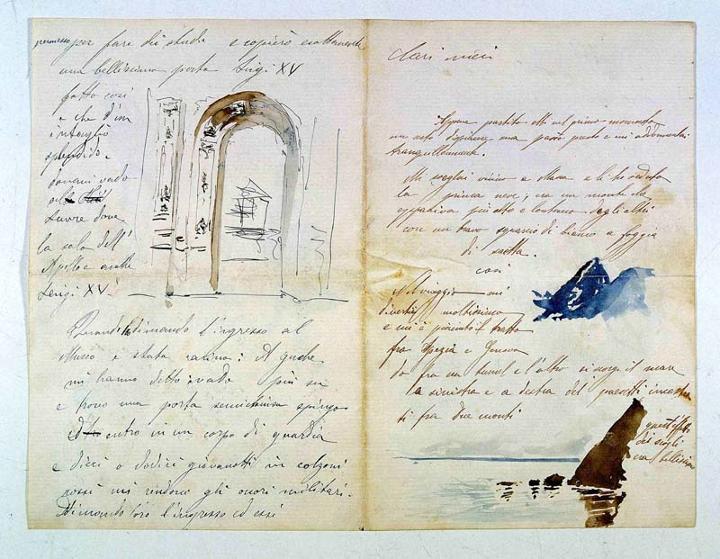 permesso per fare dei studi e copierò esattamente
una bellissima porta Luigi XV
fatta così
e che d'un
intaglio
splendido e
domani vado
al
Luvre dove
la sala dell'
Apollo e anche
Luigi XV!
Quando dimando l'ingresso al
Museo è stata carina: A Guche
mi hanno detto vado più su
e trovo una porta semichiusa spingo
entro in un corpo di guardia
e dieci o dodici giovanotti in calzoni
rossi mi rendono gli onori militari.
Dimando loro l'ingresso ed essi
Cari miei
Appena partito ebbi nel primo momento
un certo dispiacere ma passò presto e mi addormentai
tranquillamente.
Mi svegliai vicino a Massa e lì ho veduto
la prima neve, era un monte che
appariva più alto e lontano degli altri
con un bravo sprazzo di bianco a foggia
di saetta.
così
Il viaggio mi
divertì moltissimo
e mi è piaciuto il tratto
fra Spezia e Genova
da fra un tunnel e l'altro si scorge il mare
la sinistra e a destra dei paesetti incastra
ti fra due monti
quest'effetto
dei scogli
era bellissimo